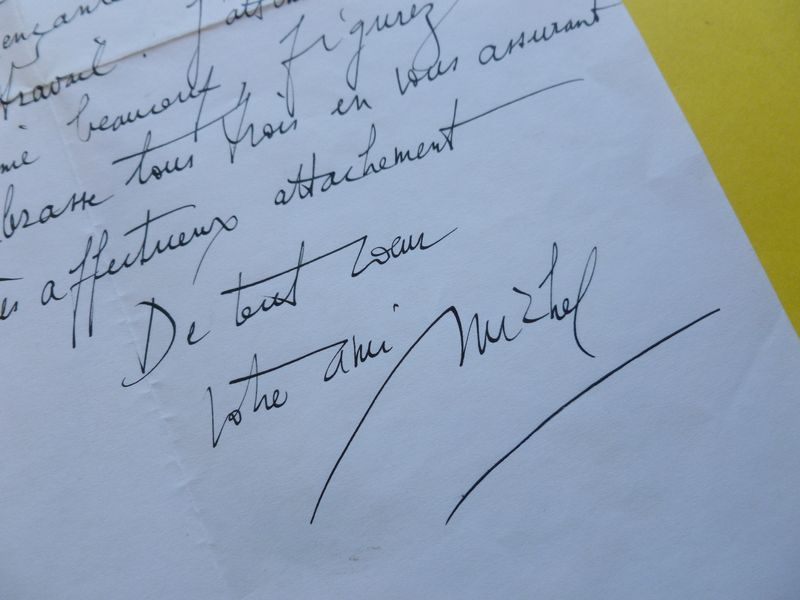 travail. J'atten
beaucoup, figurez
brasse tous trois en vous assurant
affectueux attachement
De tout cœur
Votre ami Michel